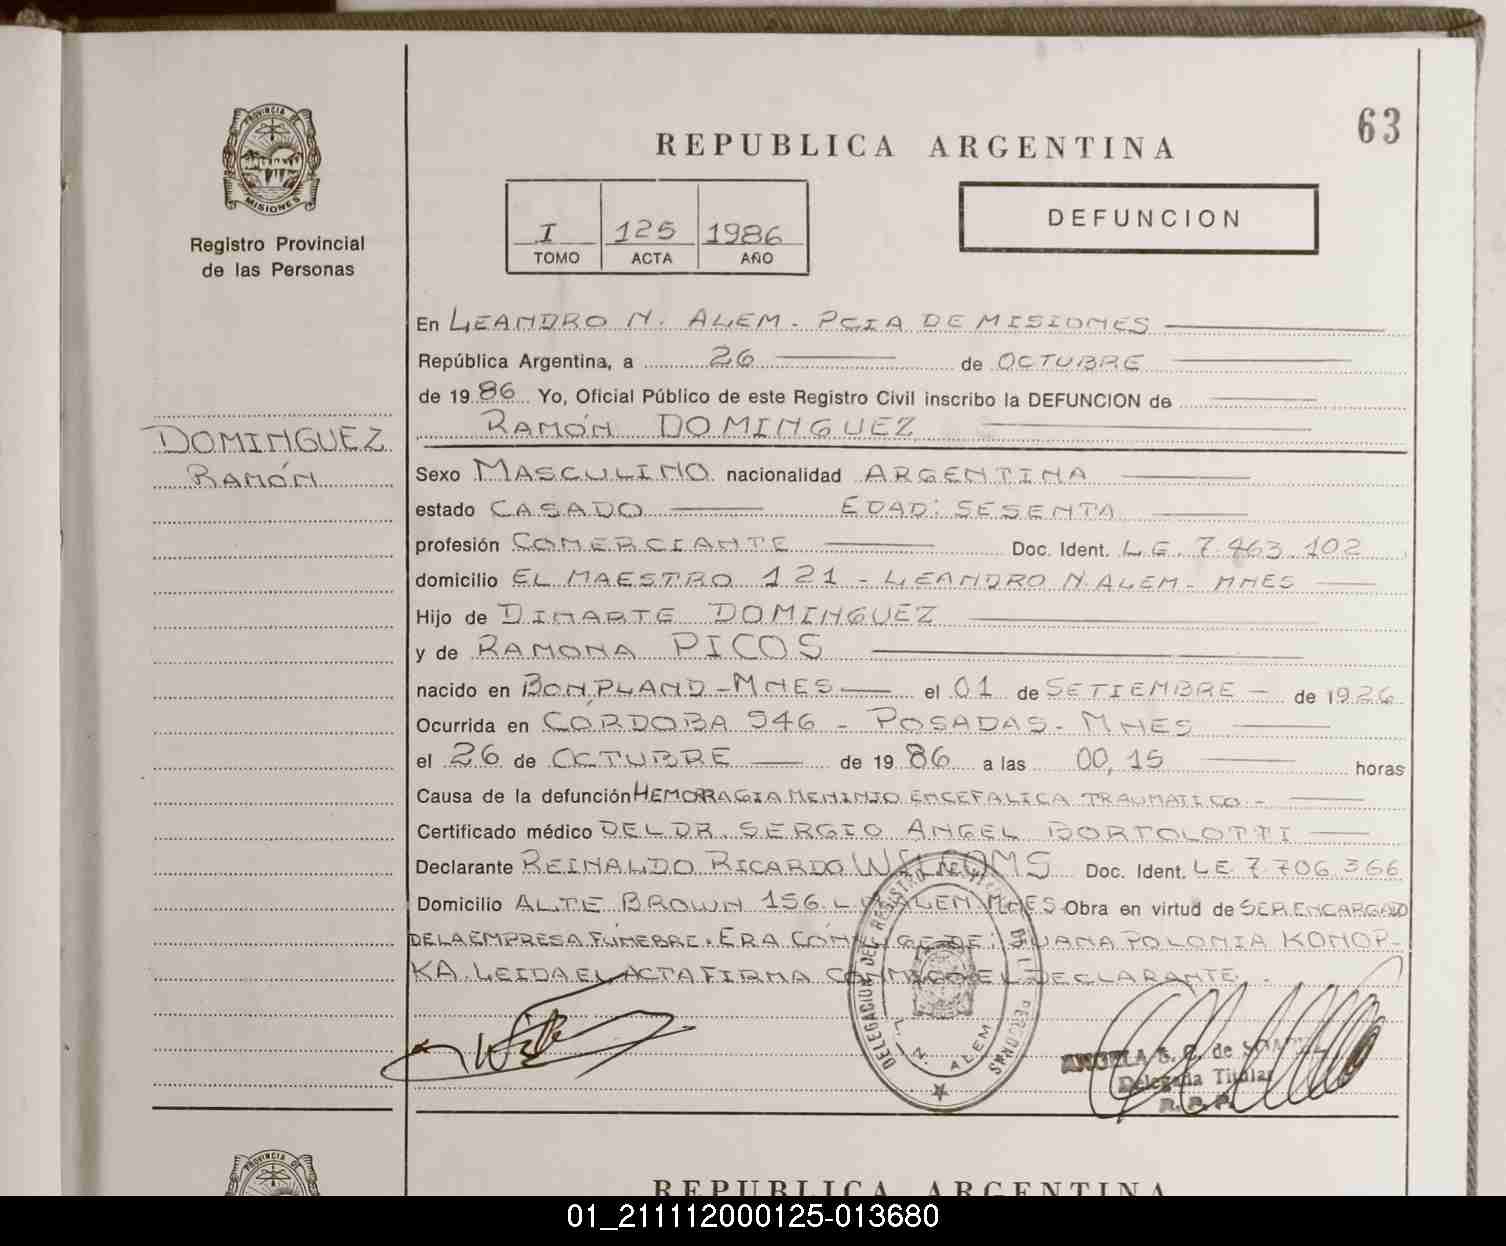 63
PROVINCIA DE
MISIONES
Registro Provincial
de las Personas
REPUBLICA ARGENTINA
I 125 1986
TOMO ACTA AÑO
DEFUNCION
En LEANDRO N. ALEM - PCIA DE MISIONES
República Argentina, a 26 de OCTUBRE
de 1986 Yo, Oficial Público de este Registro Civil inscribo la DEFUNCION de
RAMÓN DOMINGUEZ
DOMINGUEZ
RAMÓN
Sexo MASCULINO nacionalidad ARGENTINA
estado CASADO EDAD: SESENTA
profesión COMERCIANTE Doc. Ident. L.E. 7.463.102
domicilio EL MAESTRO 121 - LEANDRO N. ALEM - MNES
Hijo de DINARTE DOMINGUEZ
y de RAMONA PICOS
nacido en BONPLAND - MNES el 01 de SETIEMBRE - de 1926
Ocurrida en CÓRDOBA 546 - POSADAS - MNES
el 26 de OCTUBRE de 1986 a las 00,15 horas
Causa de la defunción HEMORRAGIA MENINJO ENCEFALICA TRAUMATICO -
Certificado médico DEL DR. SERGIO ANGEL BORTOLOTTI
Declarante REINALDO RICARDO Doc. Ident. LE 7.706.366
Domicilio ALTE BROWN 156 L. N. ALEM MNES Obra en virtud de SER ENCARGADO
DE LA EMPRESA FÚNEBRE. ERA CÓNYUGE DE: JUANA POLONIA KONOP-
KA. LEIDA EL ACTA FIRMA CONMIGO EL DECLARANTE.
DELEGACION DEL REGISTRO PROV. DE LAS PERSONAS
L. N. ALEM
ANGELA S. G. de
Delegada Titular
R. P. P.
PROVINCIA DE
REPUBLICA ARGENTINA
01_211112000125-013680